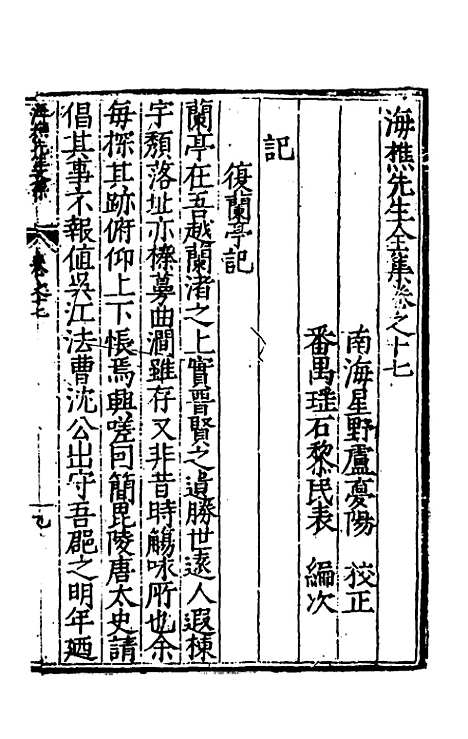 海樵先生全集卷之十七
南海星野盧夢陽　校正
番禺瑶石黎民表　編次
記
復蘭亭記
蘭亭在吾越蘭渚之上實晉賢之遺勝世遠人遐棟
宇頽落址亦榛莽曲澗雖存又非昔時觴咏所也余
每探其跡俯仰上下悵焉興嗟囙簡毘陵唐太史請
倡其事不報值吳江法曹沈公出守吾郡之明年廼
海樵先生集
卷之十七